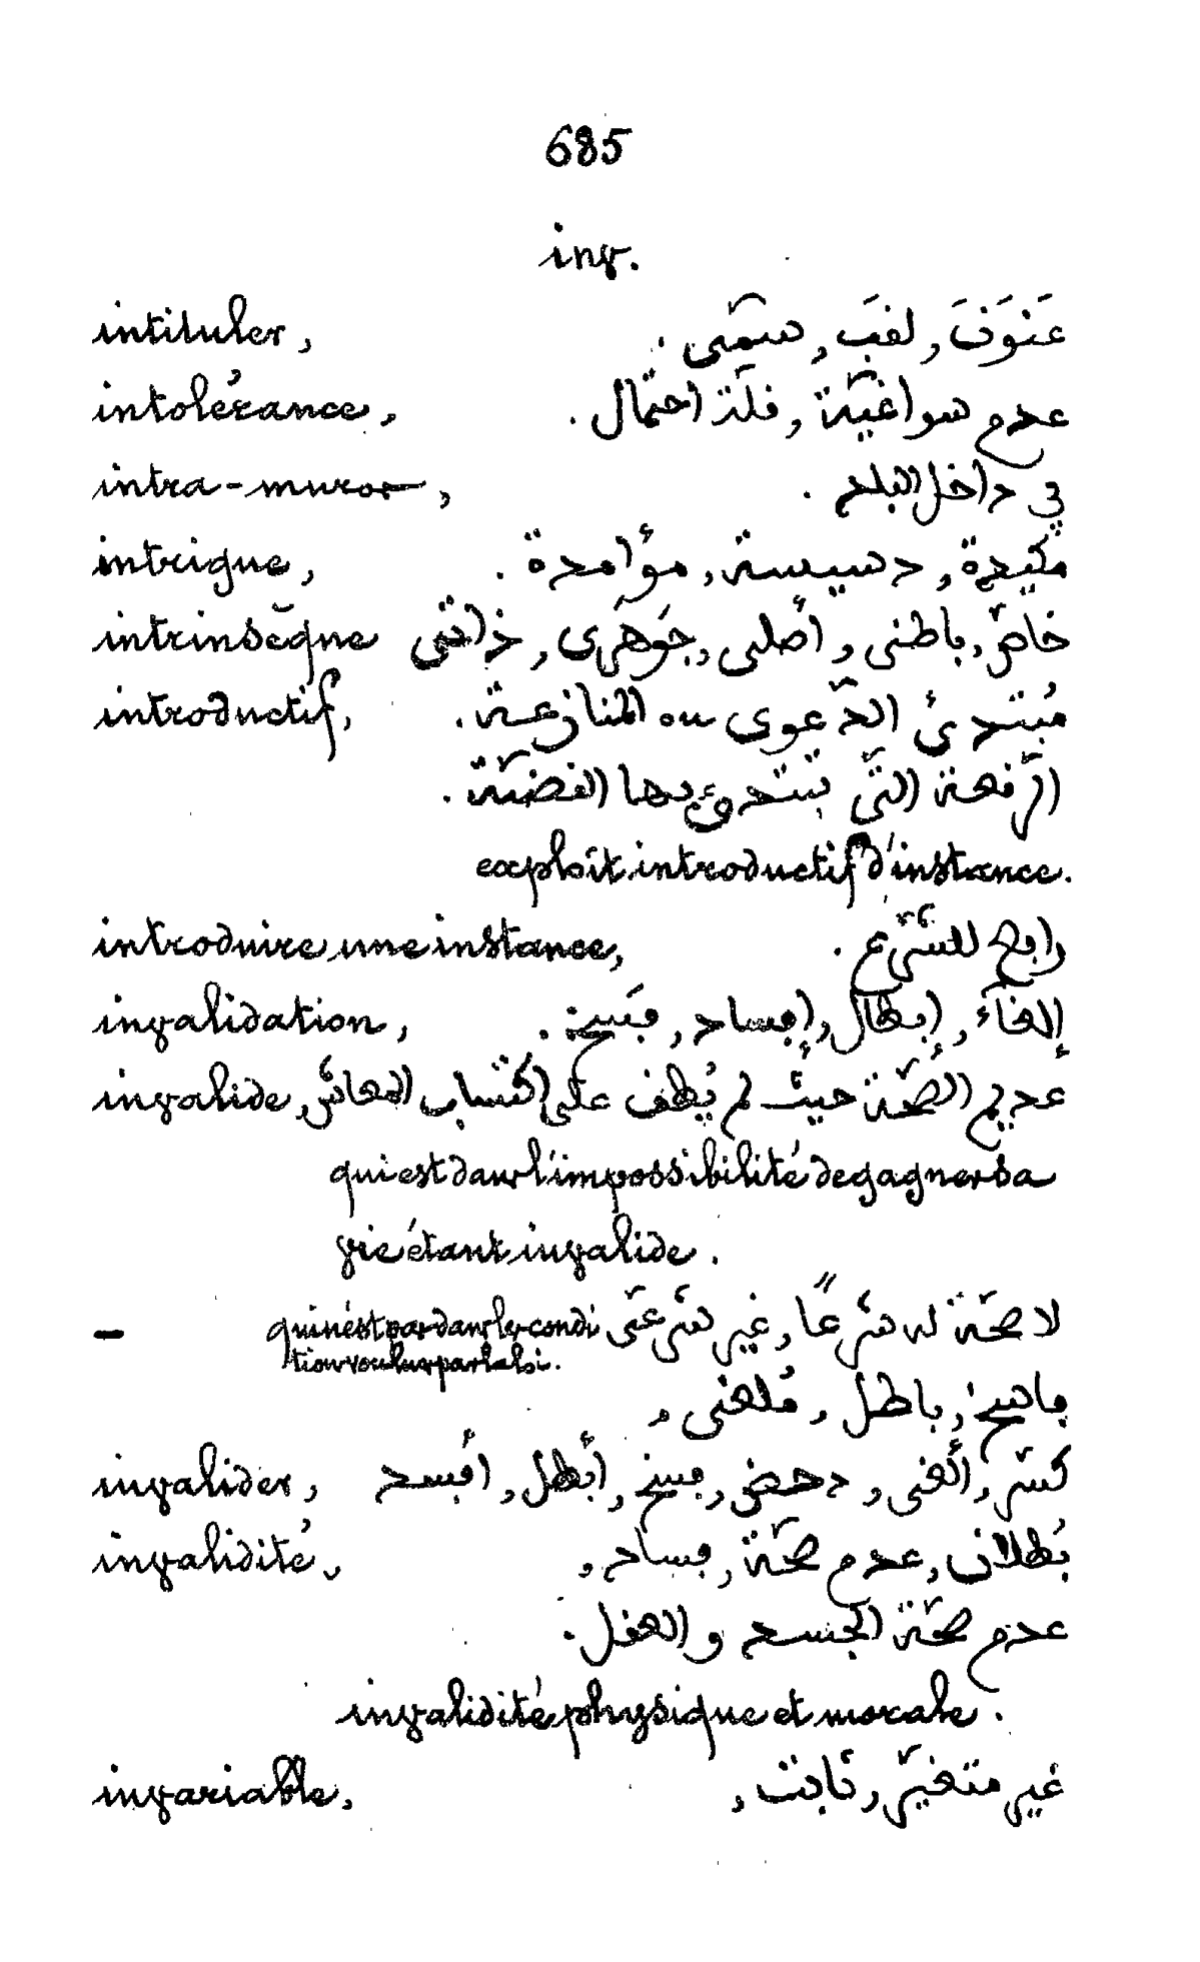 685
inv.
intituler, عَنوَنَ, لقبَ, سَمّى.
intolérance, عدم سواغيّة, قلّة احتمال.
intra-muros, في داخل البلد.
intrigue, مكيدة, دسيسة, مؤامدة.
intrinsèque خاصّ, باطنى, أصلى, جَوهَرى, ذاتى
introductif, مُبتدئ الدّعوى ou المنازعة.
الرّقعة التّى تبتدؤ بها القضيّة.
exploit introductif d'instance.
introduire une instance, رابع للشّرع.
invalidation, إلغآء, إبطال, إفساد, فَسخ.
invalide, عديم الصّحّة حيث لم يُطق على اكتساب المعاش
qui est dans l'impossibilité de gagner sa
vie étant invalide.
– لا صحّة له شرعًا, غير شرعىّ qui n'est pas dans les condi
tions voulues par la loi.
فاسخ, باطل, مُلغى,
invalider, كسّر, ألغى, دحض, فسخ, أبطل, أفسد
invalidité, بُطلان, عدم صحّة, فساد,
عدم صحّة الجسد و العقل.
invalidité physique et morale.
invariable, غير متغيّر, ثابت,